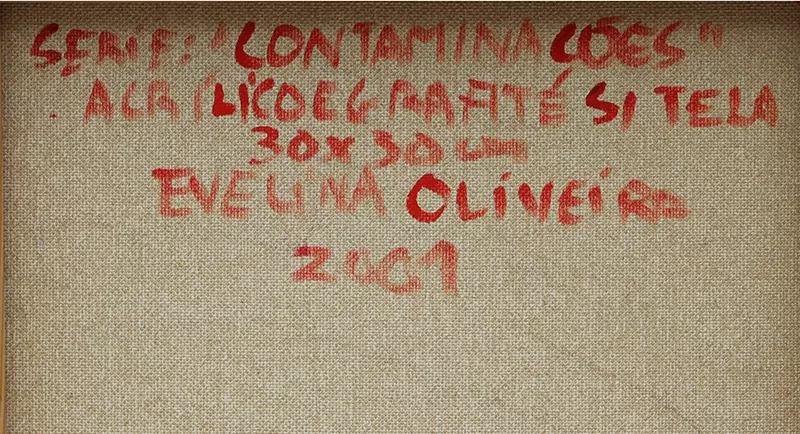 SERIE: "CONTAMINAÇÕES"
ACRÍLICO E GRAFITÉ S/ TELA
30x30 cm
EVELINA OLIVEIRA
2001